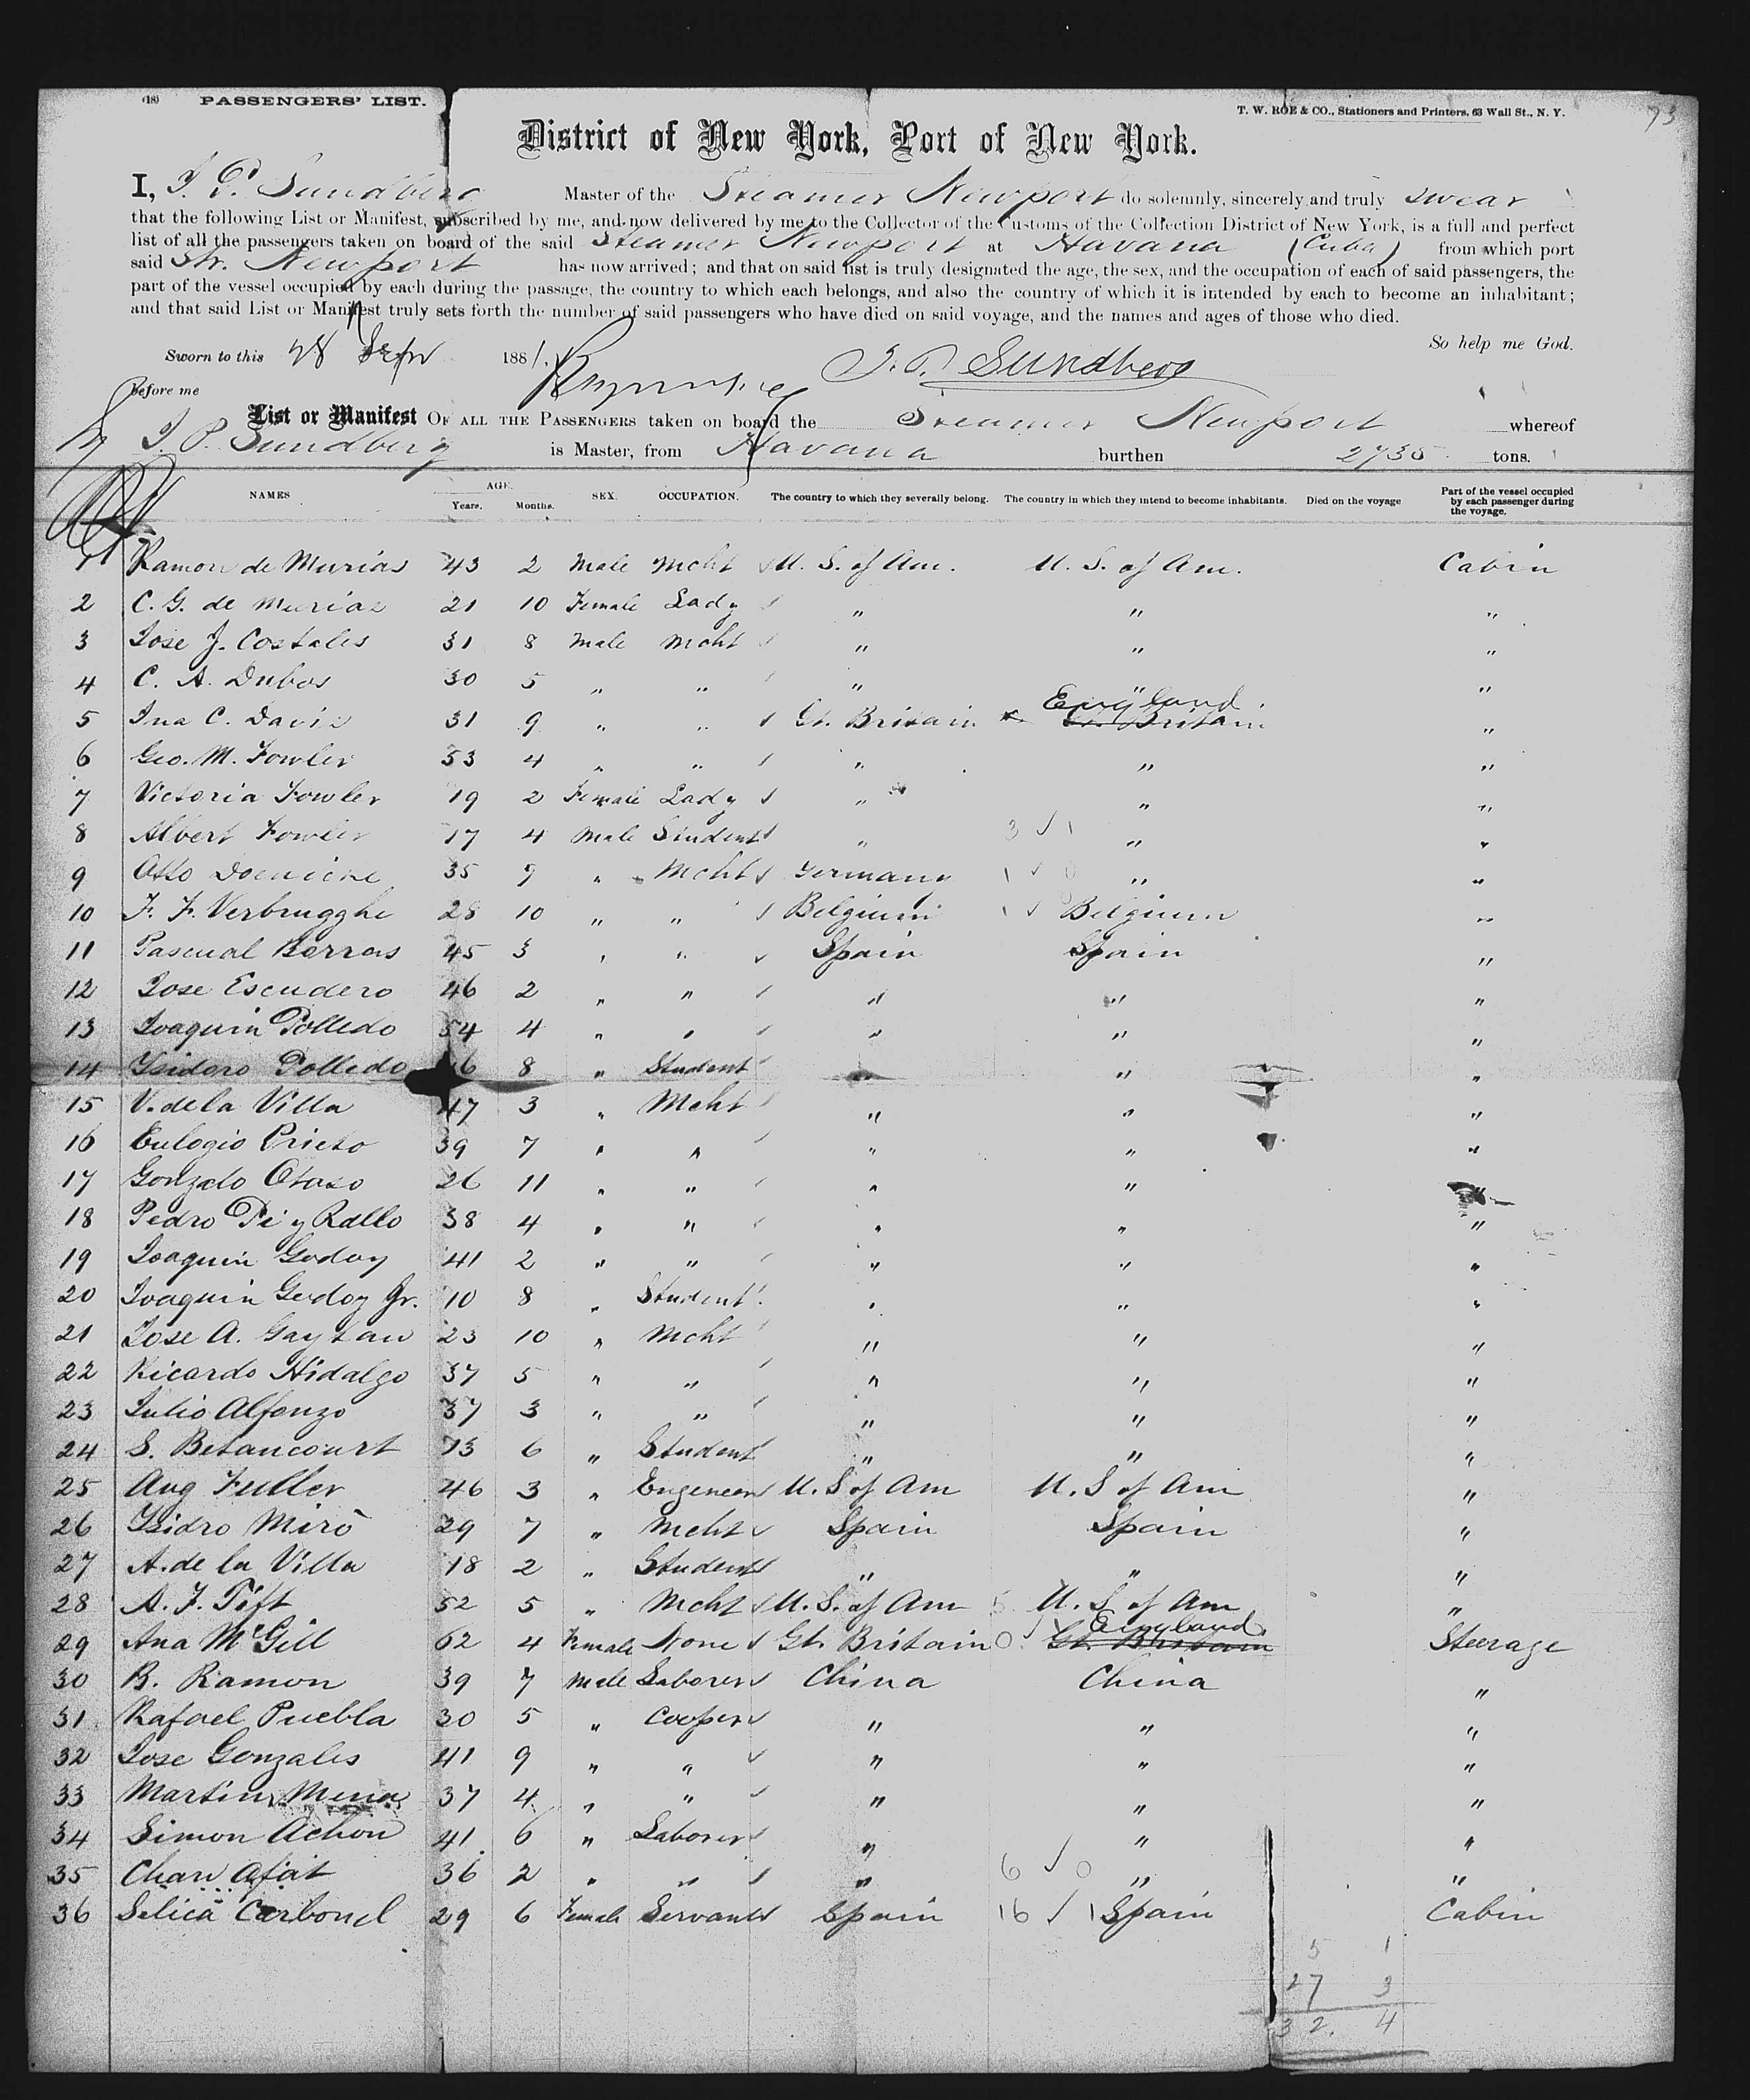 (18) PASSENGERS' LIST.
T. W. ROE & CO., Stationers and Printers, 63 Wall St., N. Y.
73
District of New York, Port of New York.
I, J. P. Sundberg Master of the Steamer Newport do solemnly, sincerely and truly swear
that the following List or Manifest, subscribed by me, and now delivered by me to the Collector of the Customs of the Collection District of New York, is a full and perfect
list of all the passengers taken on board of the said Steamer Newport at Havana (Cuba) from which port
said Str. Newport has now arrived; and that on said list is truly designated the age, the sex, and the occupation of each of said passengers, the
part of the vessel occupied by each during the passage, the country to which each belongs, and also the country of which it is intended by each to become an inhabitant;
and that said List or Manifest truly sets forth the number of said passengers who have died on said voyage, and the names and ages of those who died.
So help me God.
Sworn to this 28 1881. J. P. Sundberg
Before me
List or Manifest OF ALL THE PASSENGERS taken on board the Steamer Newport whereof
J. P. Sundberg is Master, from Havana burthen 2735 tons.
NAMES AGE. Years. Months. SEX. OCCUPATION. The country to which they severally belong. The country in which they intend to become inhabitants. Died on the voyage Part of the vessel occupied by each passenger during the voyage.
1 Ramon de Murias 43 2 Male Mcht U. S. of Am. U. S. of Am. Cabin
2 C. G. de Murias 21 10 Female Lady " " "
3 Jose J. Costales 31 8 Male Mcht " " "
4 C. A. Dubos 30 5 " " " " "
5 Ina C. Davis 31 9 " " Gt. Britain England Gt. Britain "
6 Geo. M. Fowler 53 4 " " " " "
7 Victoria Fowler 19 2 Female Lady " " "
8 Albert Fowler 17 4 Male Student " 3 √ 1 " "
9 Otto 35 9 " Mcht Germany " "
10 F. F. Verbrugghe 28 10 " " Belgium Belgium "
11 Pascual Barras 45 3 " " Spain Spain "
12 Jose Escudero 46 2 " " " " "
13 Joaquin Polledo 54 4 " " " " "
14 Ysidoro Polledo 8 " Student " " "
15 V. de la Villa 47 3 " Mcht " " "
16 Eulogio Prieto 39 7 " " " " "
17 Gonzalo Otaso 26 11 " " " " "
18 Pedro Pi y Rallo 38 4 " " " " "
19 Joaquin Godoy 41 2 " " " " "
20 Joaquin Godoy Jr. 10 8 " Student " " "
21 Jose A. Gaytan 23 10 " Mcht " " "
22 Ricardo Hidalgo 37 5 " " " " "
23 Julio Alfonzo 37 3 " " " " "
24 S. Betancourt 13 6 " Student " " "
25 Aug Fuller 46 3 " Engineer U. S of Am U. S of Am "
26 Ysidro Miró 29 7 " Mcht Spain Spain "
27 A. de la Villa 18 2 " Student " " "
28 A. F. Tift 52 5 " Mcht U. S. of Am U. S of Am "
29 Ana McGill 62 4 Female None Gt. Britain England Gt. Britain Steerage
30 B. Ramon 39 7 Male Laborer China China "
31 Rafael Puebla 30 5 " Cooper " " "
32 Jose Gonzales 41 9 " " " " "
33 Martin Mena 37 4 " " " " "
34 Simon Achon 41 6 " Laborer " " "
35 Chan Afat 36 2 " " " 6 √ 0 " "
36 Selica Carbonel 29 6 Female Servant Spain 16 √ 1 Spain Cabin
5 1
27 3
32. 4